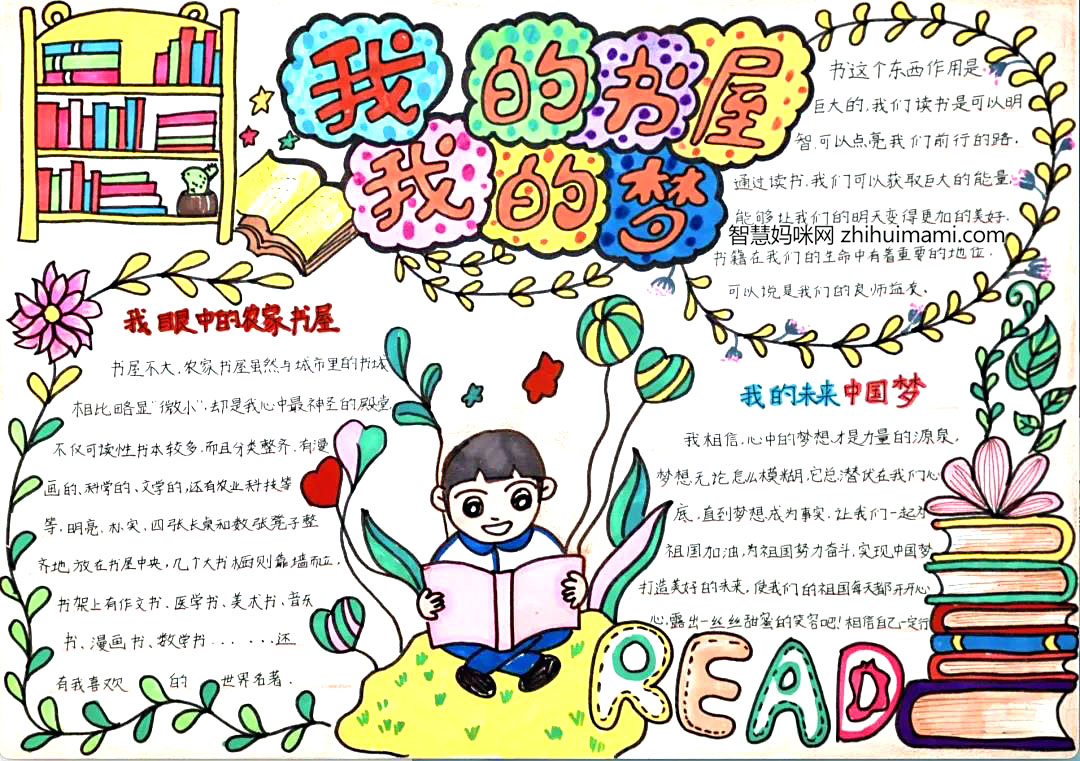 我的书屋
我的梦
书这个东西作用是
巨大的,我们读书是可以明
智,可以点亮我们前行的路.
通过读书,我们可以获取巨大的能量,
能够让我们的明天变得更加的美好.
智慧妈咪网 zhihuimami.com
书籍在我们的生命中有着重要的地位.
可以说是我们的良师益友.
我眼中的农家书屋
书屋不大,农家书屋虽然与城市里的书城
相比略显“微小”,却是我心中最神圣的殿堂,
不仅可读性书本较多,而且分类整齐,有漫
画的、科学的、文学的,还有农业科技等
等,明亮、朴实,四张长桌和数张凳子整
齐地放在书屋中央,几个大书橱则靠墙而立,
书架上有作文书、医学书、美术书、音乐
书、漫画书、数学书......,还
有我喜欢 的 世界名著.
我的未来中国梦
我相信,心中的梦想才是力量的源泉,
梦想无论怎么模糊,它总潜伏在我们心
底,直到梦想成为事实,让我们一起为
祖国加油,为祖国努力奋斗,实现中国梦
打造美好的未来,使我们的祖国每天都开开心
心,露出一丝丝甜蜜的笑容吧!相信自己一定行
READ